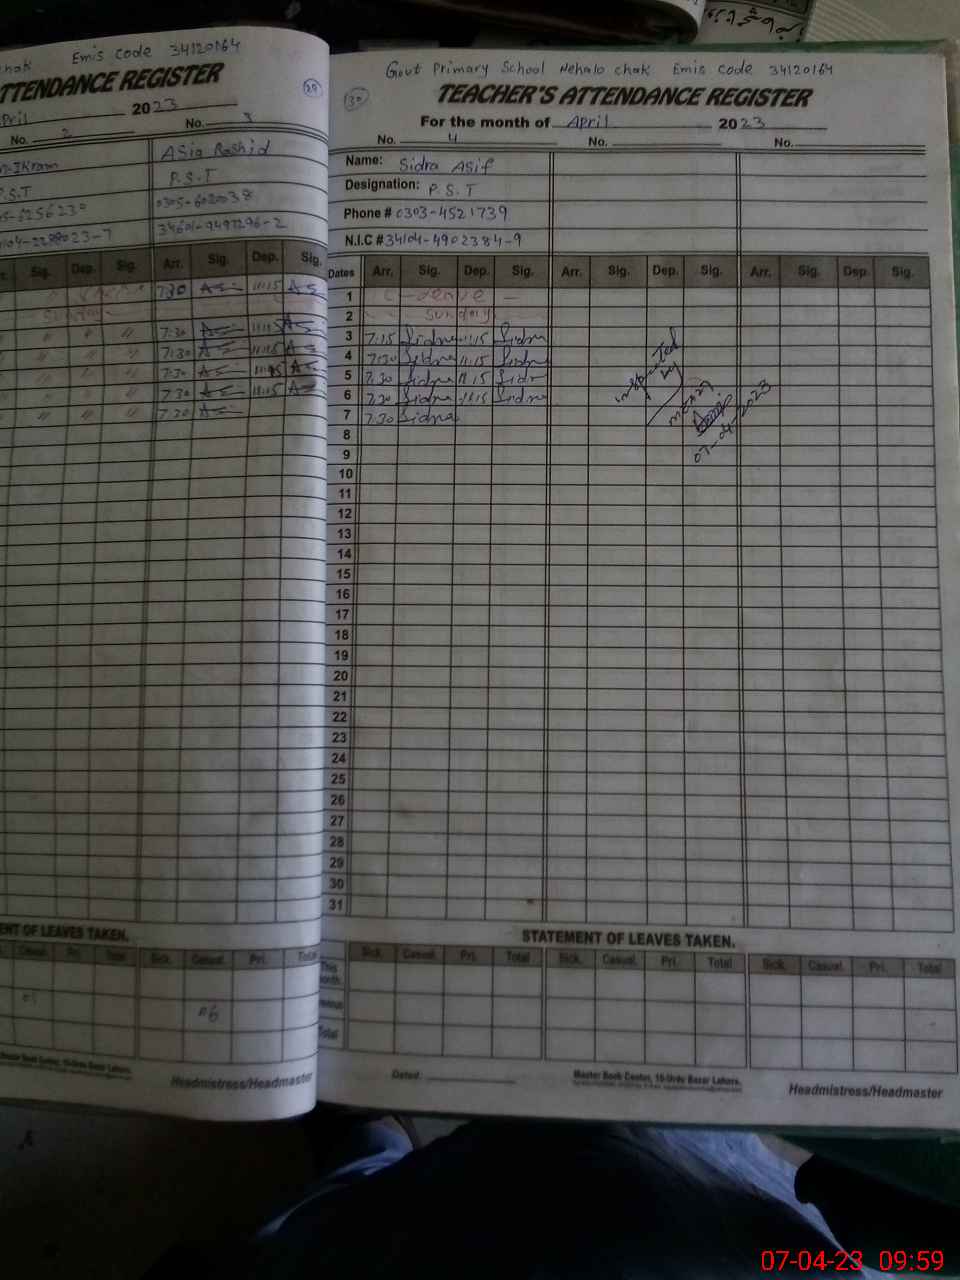 Emis Code 34120164
TTENDANCE REGISTER
2023
No. 2
No. 3
Asia Rashid
P.S.T
Sig. Dep. Sig. Arr. Sig. Dep. Sig.
7:30 AS 11:15 AS
Sunday
〃 〃 〃 7:30 AS 11:15 AS
〃 〃 7:30 AS 11:15 AS
〃 〃 〃 7:30 AS 11:15 AS
〃 〃 〃 7:30 AS 11:15 AS
〃 〃 〃 7:30 AS
ENT OF LEAVES TAKEN.
Casual. Pri. Total Sick. Casual. Pri. Total
01
06
Headmistress/Headmaster
Govt Primary School Nehalo Chak Emis Code 34120164
30
TEACHER'S ATTENDANCE REGISTER
For the month of April 2023
No. 4 No. No.
Name: Sidra Asif
Designation: P.S.T
Phone # 0303-4521739
N.I.C # 34104-4902384-9
Dates Arr. Sig. Dep. Sig. Arr. Sig. Dep. Sig. Arr. Sig. Dep. Sig.
1 C-Leave -
2 Sunday
3 7:15 Sidra 11:15 Sidra
4 7:30 Sidra 11:15 Sidra
5 7:30 Sidra 11:15 Sidra
6 7:30 Sidra 11:15 Sidra
7 7:30 Sidra
inspected
by
07-04-2023
8
9
10
11
12
13
14
15
16
17
18
19
20
21
22
23
24
25
26
27
28
29
30
31
STATEMENT OF LEAVES TAKEN.
Sick. Casual. Pri. Total Sick. Casual. Pri. Total Sick. Casual. Pri. Total
This
month.
Total
Dated:
Master Book Center, 15-Urdu Bazar Lahore.
Headmistress/Headmaster
07-04-23 09:59